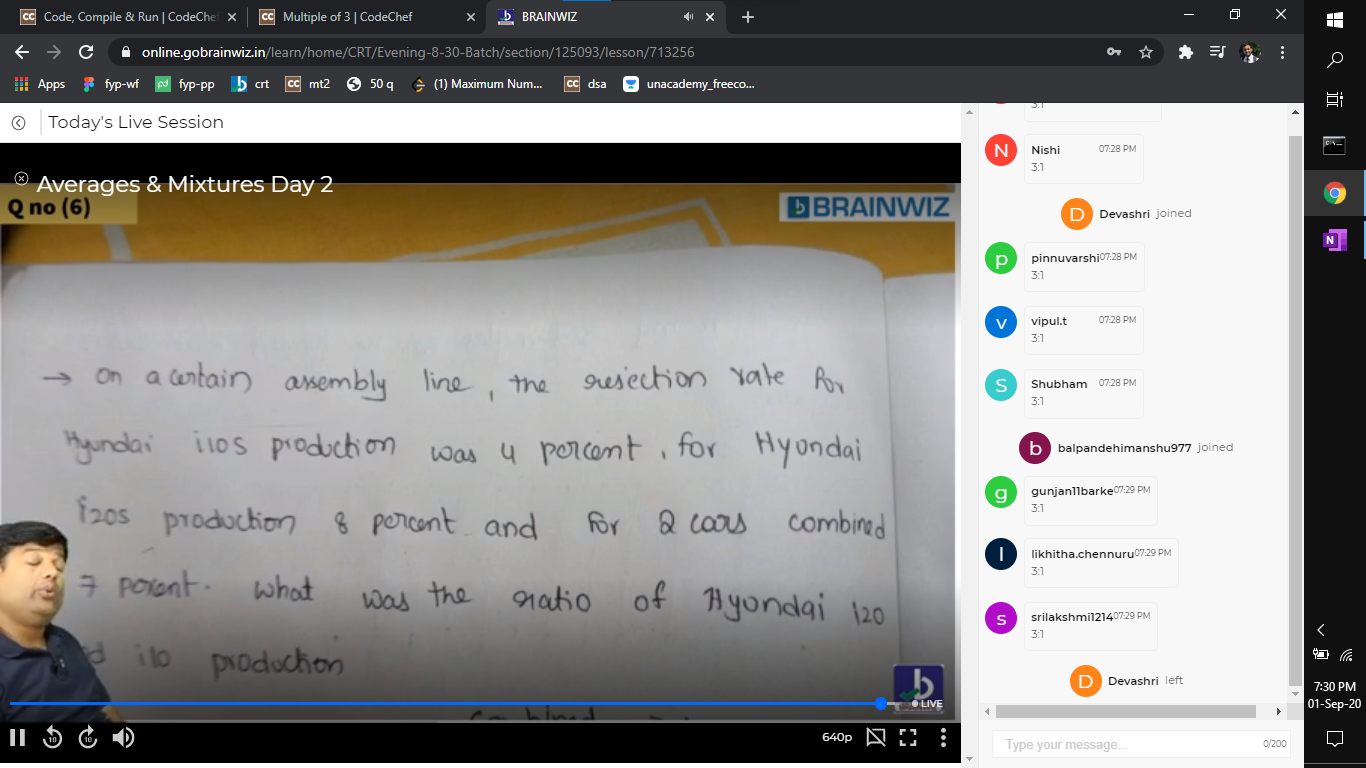 Code, Compile & Run | CodeChe
Multiple of 3 | CodeChef
BRAINWIZ
online.gobrainwiz.in/learn/home/CRT/Evening-8-30-Batch/section/125093/lesson/713256
Apps
fyp-wf
fyp-pp
crt
mt2
50 q
(1) Maximum Num...
dsa
unacademy_freeco...
Today's Live Session
Averages & Mixtures Day 2
Q no (6)
BRAINWIZ
→ on a certain assembly line, the rejection rate for
Hyundai i10s production was 4 percent, for Hyondai
i20s production 8 percent and for 2 cars combined
7 percent. What was the ratio of Hyundai i20
d i10 production
combined
LIVE
10
10
640p
3:1
N
Nishi 07:28 PM
3:1
D Devashri joined
p
pinnuvarshi07:28 PM
3:1
v
vipul.t 07:28 PM
3:1
S
Shubham 07:28 PM
3:1
b balpandehimanshu977 joined
g
gunjan11barke07:29 PM
3:1
l
likhitha.chennuru07:29 PM
3:1
s
srilakshmi121407:29 PM
3:1
D Devashri left
Type your message... 0/200
7:30 PM
01-Sep-20